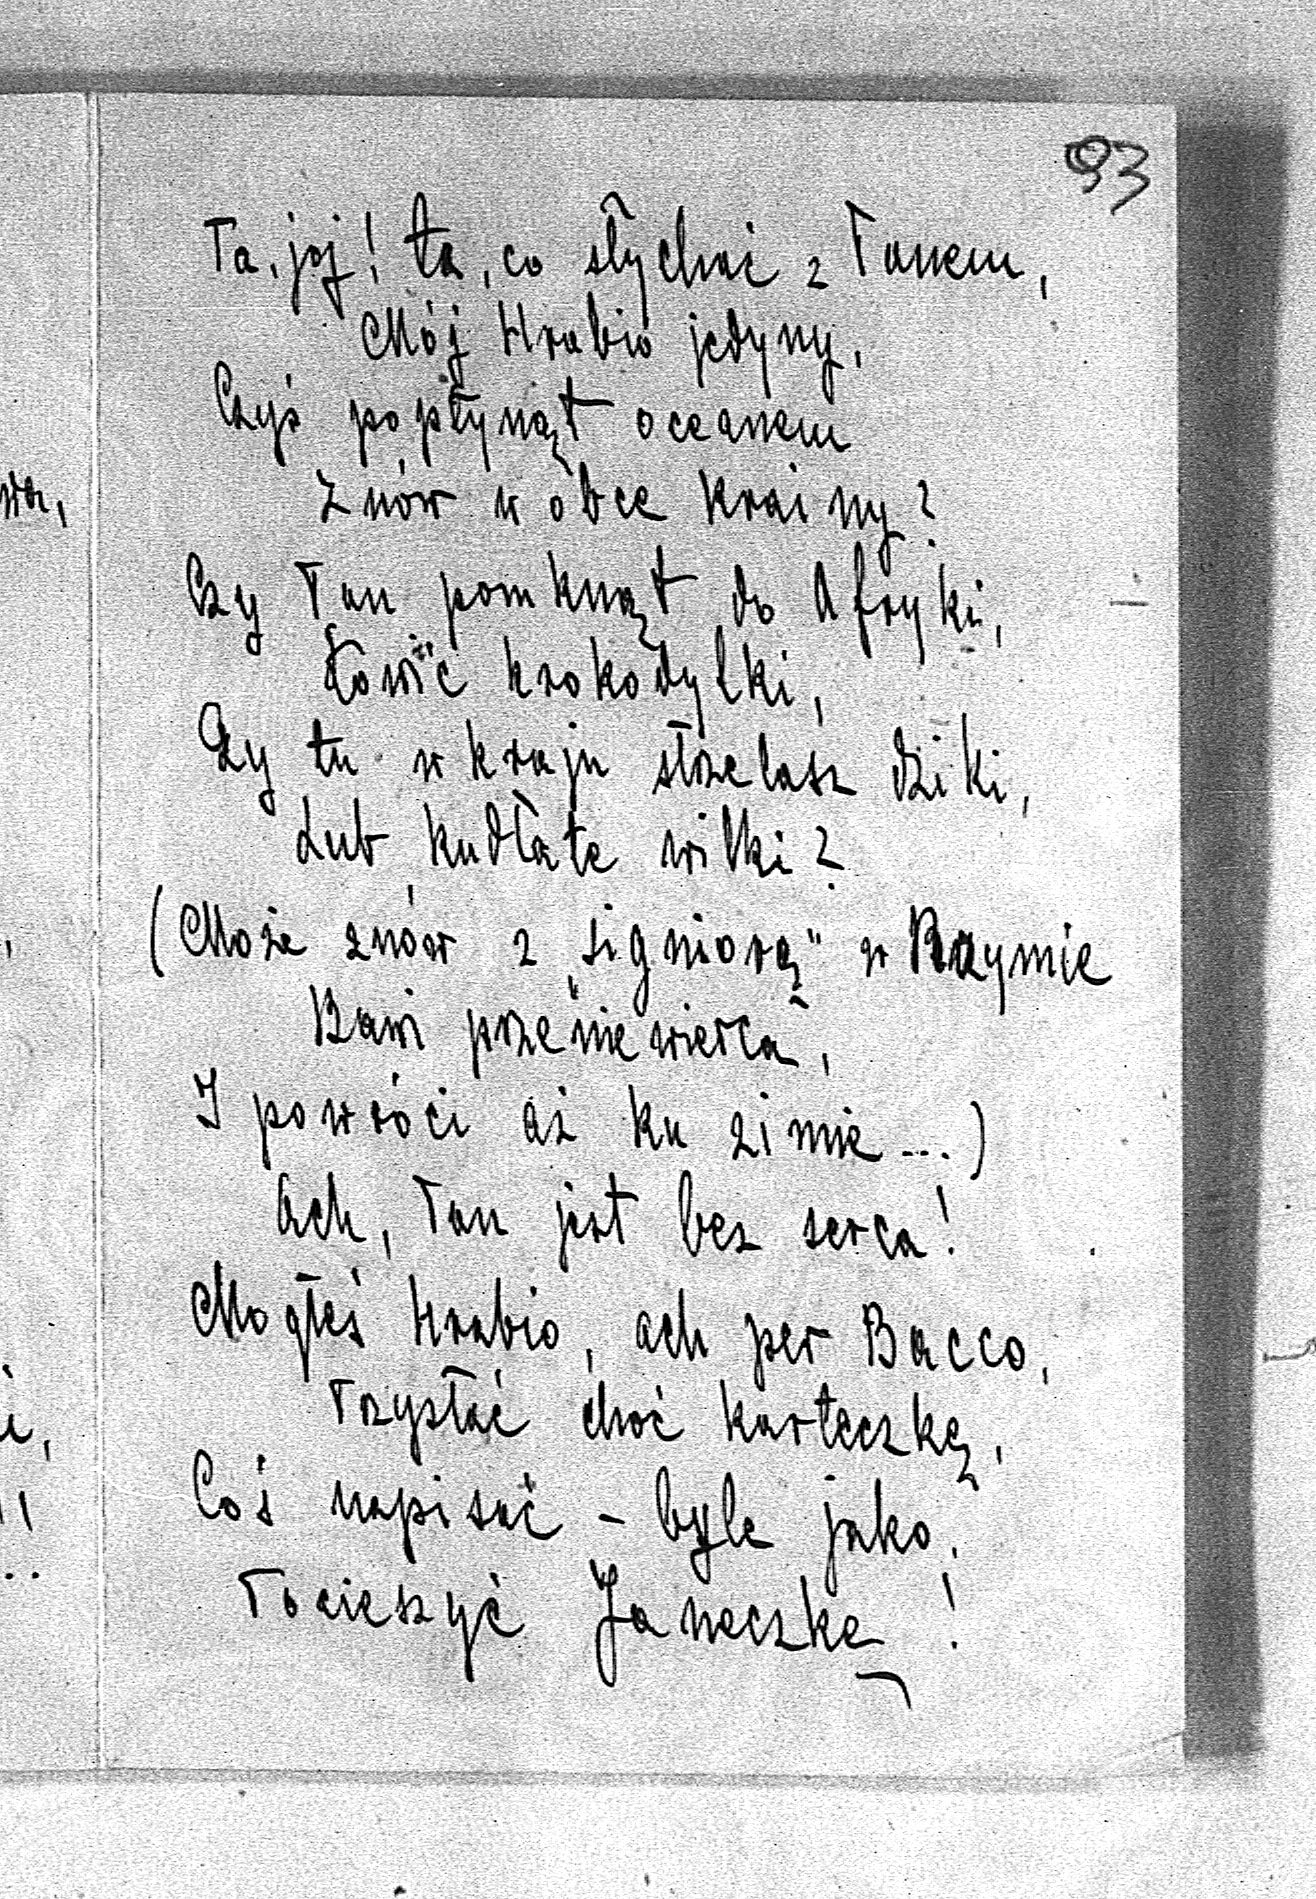 93
Ta, joj! ta, co słychać z Panem,
Mój Hrabio jedyny,
Czyś popłynął oceanem
Znów w obce krainy?
Czy Pan pomknął do Afryki,
Łowić krokodylki,
Czy tu w kraju strzelasz dziki,
Lub kudłate wilki?
(Może znów z „signiorą" w Rzymie
Bawi przeniewierca,
I powróci aż ku zimie...)
Ach, Pan jest bez serca!
Mogłeś Hrabio, ach per Bacco,
Przysłać choć karteczkę,
Coś napisać – byle jako,
Pocieszyć Janeczkę!